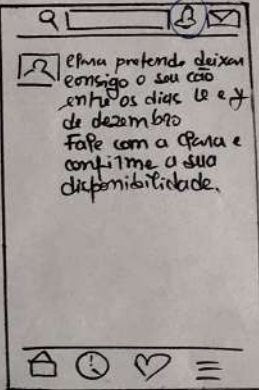 Clara pretende deixar
consigo o seu cão
entre os dias
de dezembro
Fale com a Clara e
confirme a sua
disponibilidade.